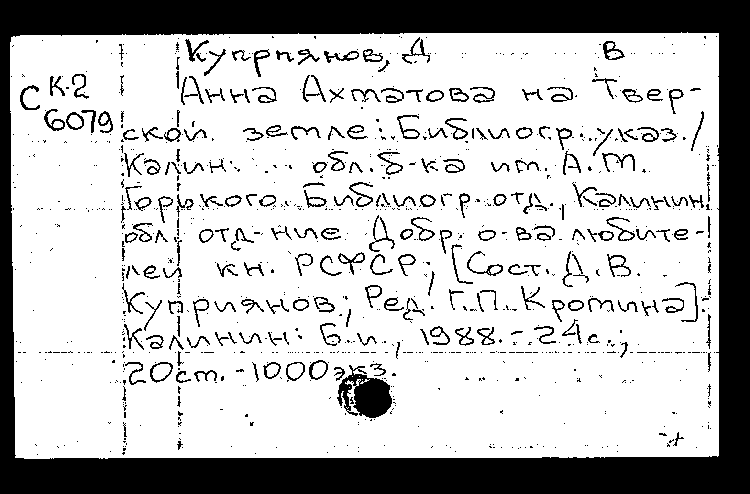 Куприянов, Д В
С К-2 6079
Анна Ахматова на Твер-
ской земле: Библиогр. указ. /
Калин. обл. б-ка им. А.М.
Горького. Библиогр. отд., Калинин.
обл. отд-ние Добр. о-ва любите-
лей кн. РСФСР; [Сост. Д.В.
Куприянов; Ред. Г.П. Кротина].-
Калинин: Б.и., 1988.- 24с.;
20ст. -1000экз.